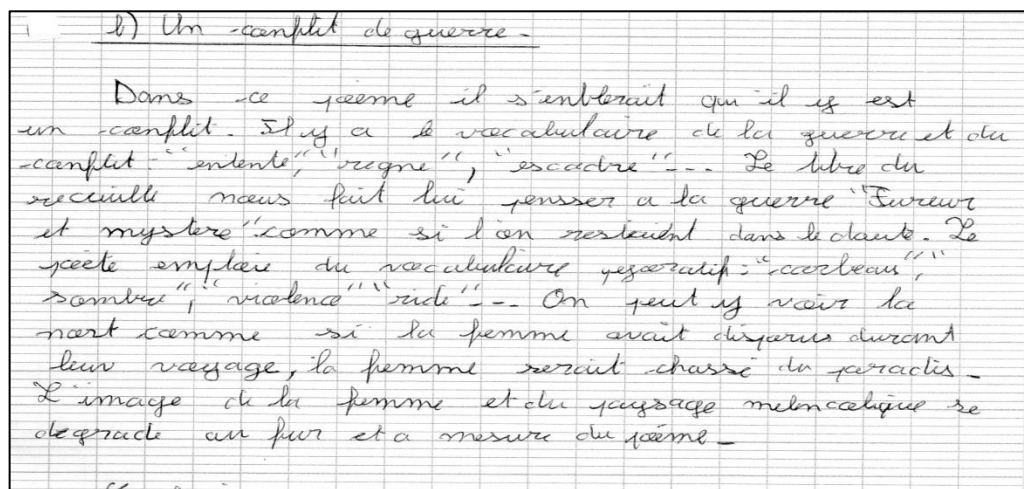 b) Un conflit de guerre.
Dans ce poème il s'enblerait qu'il y est
un conflit. Il y a le vocabulaire de la guerre et du
conflit : "entente", "règne", "escadre"... Le titre du
recueille nous fait lui pensser a la guerre "Fureur
et mystere" comme si l'on restaient dans le doute. Le
poète emploie du vocabulaire pejoratif : "corbeaus",
"sombre", "violence" "ride"... On peut y voir la
mort comme si la femme avait disparus durant
leur voyage, la femme serait chassé du paradis.
L'image de la femme et du paysage meloncolique se
degrade au fur et a mesure du poème.